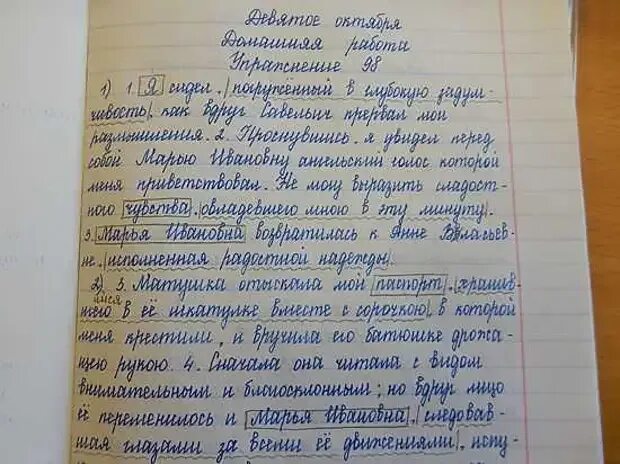 Девятое октября
Домашняя работа
Упражнение 98
1) 1. Я сидел, погружённый в глубокую задум-
чивость, как вдруг Савельич прервал мои
размышления. 2. Проснувшись, я увидел перед
собой Марью Ивановну ангельский голос которой
меня приветствовал. Не могу выразить сладост-
ного чувства, овладевшего мною в эту минуту.
3. Марья Ивановна возвратилась к Анне Власьев-
не, исполненная радостной надежды.
2) 3. Матушка отыскала мой паспорт, хранив-
шийся
шего в её шкатулке вместе с сорочкою, в которой
меня крестили, и вручила его батюшке дрожа-
щею рукою. 4. Сначала она читала с видом
внимательным и благосклонным; но вдруг лицо
её переменилось и Марья Ивановна, следовав-
шая глазами за всеми её движениями, испу-